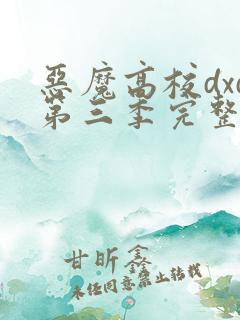 恶魔高校dxd
第三季完整
甘昕鑫
未经同意禁止转载